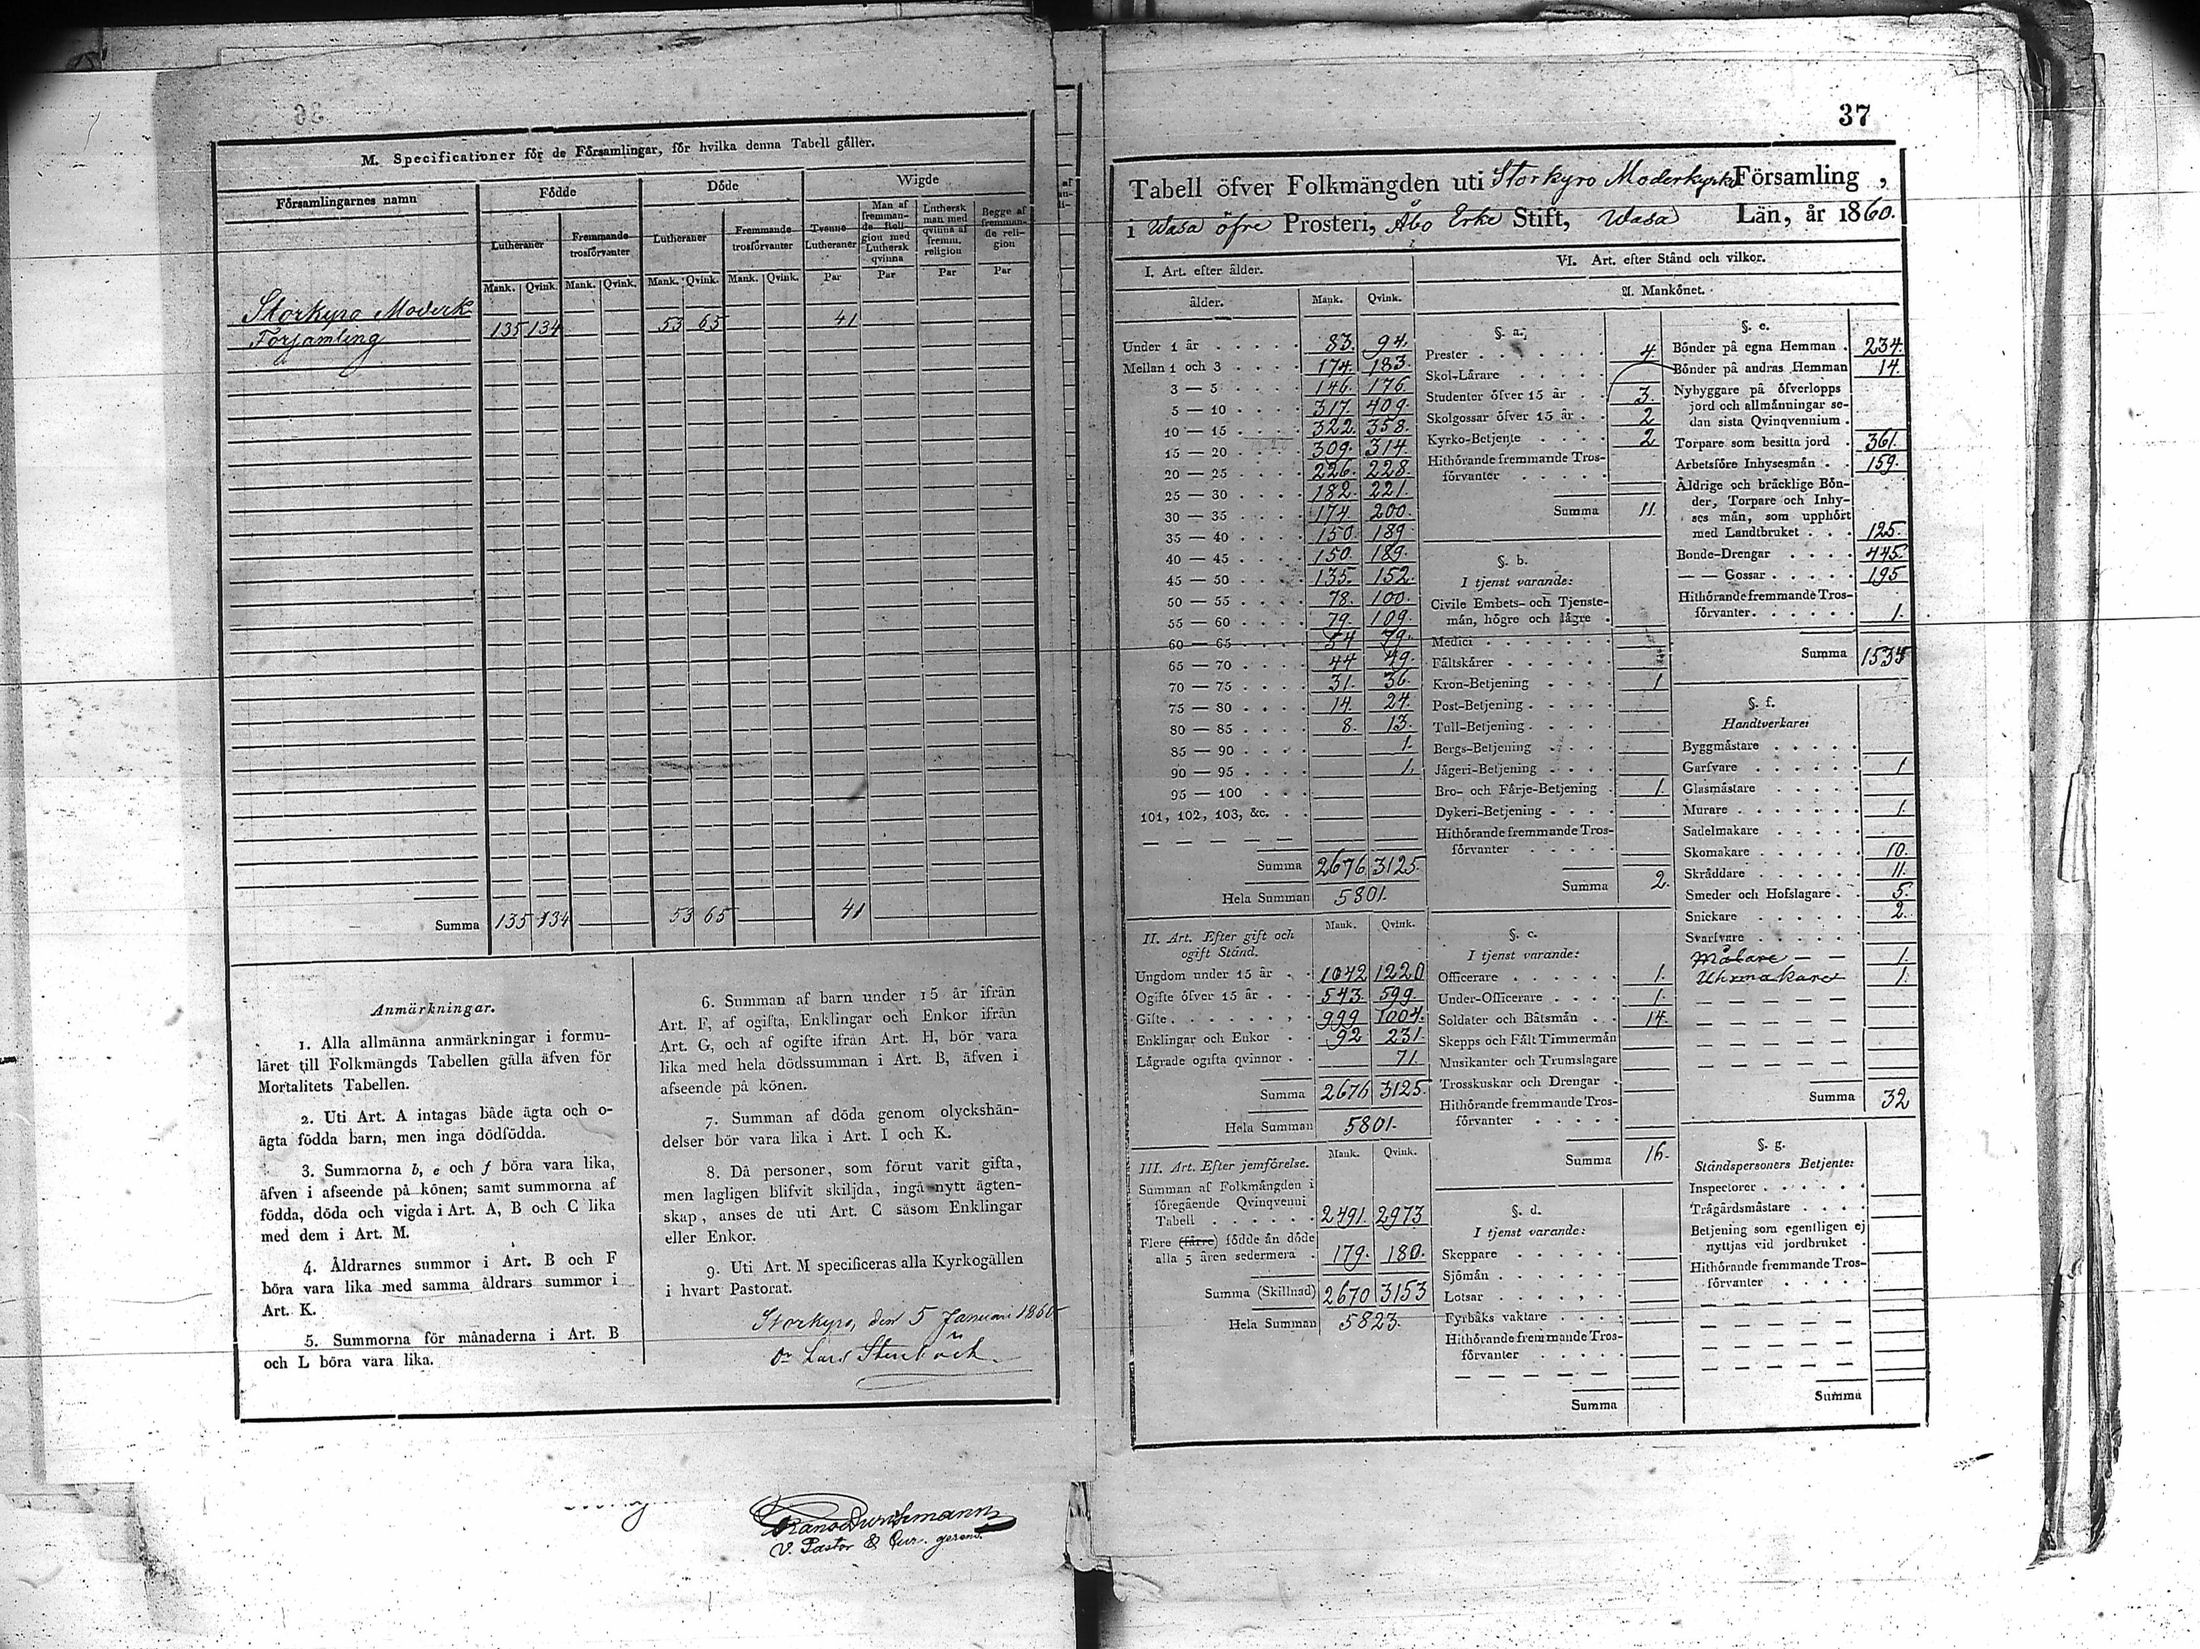 M. Specificationer för de Församlingar, för hvilka denna Tabell gäller.
Församlingarnes namn
Födde
Döde
Wigde
Lutheraner
Fremmande trosförvanter
Lutheraner
Fremmande trosförvanter
Tvenne Lutheraner
Man af fremmande Religion med Luthersk qvinna
Luthersk man med qvinna af fremm. religion
Begge af fremmande religion
Mank. Qvink. Mank. Qvink. Mank. Qvink. Mank. Qvink. Par Par Par Par
Storkyro Moderk.
Församling 135 134 53 65 41
Summa 135 134 53 65 41
Anmärkningar.
1. Alla allmänna anmärkningar i formu-
läret till Folkmängds Tabellen gälla äfven för
Mortalitets Tabellen.
2. Uti Art. A intagas både ägta och o-
ägta födda barn, men inga dödfödda.
3. Summorna b, e och f böra vara lika,
äfven i afseende på könen; samt summorna af
födda, döda och vigda i Art. A, B och C lika
med dem i Art. M.
4. Åldrarnes summor i Art. B och F
böra vara lika med samma åldrars summor i
Art. K.
5. Summorna för månaderna i Art. B
och L böra vara lika.
6. Summan af barn under 15 år ifrån
Art. F, af ogifta, Enklingar och Enkor ifrån
Art. G, och af ogifte ifrån Art. H, bör vara
lika med hela dödssumman i Art. B, äfven i
afseende på könen.
7. Summan af döda genom olyckshän-
delser bör vara lika i Art. I och K.
8. Då personer, som förut varit gifta,
men lagligen blifvit skiljda, ingå nytt ägten-
skap, anses de uti Art. C såsom Enklingar
eller Enkor.
9. Uti Art. M specificeras alla Kyrkogällen
i hvart Pastorat.
Storkyro, den 5 Januari 1860
Lars Stenbäck
V. Pastor & Cur. gerens.
37
Tabell öfver Folkmängden uti Storkyro Moderkyrko Församling,
i Wasa öfre Prosteri, Åbo Erke Stift, Wasa Län, år 1860.
I. Art. efter ålder.
ålder. Mank. Qvink.
Under 1 år 83. 94.
Mellan 1 och 3 174. 183.
3 — 5 146. 176.
5 — 10 317. 409.
10 — 15 322. 358.
15 — 20 309. 314.
20 — 25 226. 228.
25 — 30 182. 221.
30 — 35 174. 200.
35 — 40 150. 189.
40 — 45 150. 189.
45 — 50 135. 152.
50 — 55 78. 100.
55 — 60 79. 109.
60 — 65 54 79.
65 — 70 44 49.
70 — 75 31. 36.
75 — 80 14. 24.
80 — 85 8. 13.
85 — 90 1.
90 — 95 1.
95 — 100
101, 102, 103, &c.
Summa 2676 3125.
Hela Summan 5801.
II. Art. Efter gift och
ogift Stånd. Mank. Qvink.
Ungdom under 15 år 1042 1220
Ogifte öfver 15 år 543. 599.
Gifte 999 1004.
Enklingar och Enkor 92 231.
Lägrade ogifta qvinnor 71.
Summa 2676 3125.
Hela Summan 5801.
III. Art. Efter jemförelse. Mank. Qvink.
Summan af Folkmängden i
föregående Qvinqvenni
Tabell 2491. 2973
Flere (färre) födde än döde
alla 5 åren sedermera 179. 180.
Summa (Skillnad) 2670 3153
Hela Summan 5823.
VI. Art. efter Stånd och vilkor.
A. Mankönet.
§. a.
Prester 4.
Skol-Lärare
Studenter öfver 15 år 3.
Skolgossar öfver 15 år 2
Kyrko-Betjente 2
Hithörande fremmande Tros-
förvanter
Summa 11.
§. b.
I tjenst varande:
Civile Embets- och Tjenste-
män, högre och lägre
Medici
Fältskärer
Kron-Betjening 1
Post-Betjening
Tull-Betjening
Bergs-Betjening
Jägeri-Betjening
Bro- och Färje-Betjening 1.
Dykeri-Betjening
Hithörande fremmande Tros-
förvanter
Summa 2.
§. c.
I tjenst varande:
Officerare 1.
Under-Officerare 1.
Soldater och Båtsmän 14.
Skepps och Fält Timmermän
Musikanter och Trumslagare
Trosskuskar och Drengar
Hithörande fremmande Tros-
förvanter
Summa 16.
§. d.
I tjenst varande:
Skeppare
Sjömän
Lotsar
Fyrbåks vaktare
Hithörande fremmande Tros-
förvanter
Summa
§. e.
Bönder på egna Hemman 234.
Bönder på andras Hemman 14.
Nybyggare på öfverlopps
jord och allmänningar se-
dan sista Qvinqvennium
Torpare som besitta jord 361.
Arbetsföre Inhysesmän 159.
Åldrige och bräcklige Bön-
der, Torpare och Inhy-
ses män, som upphört
med Landtbruket 125.
Bonde-Drengar 445.
— — Gossar 195
Hithörande fremmande Tros-
förvanter 1.
Summa 1534
§. f.
Handtverkare:
Byggmästare
Garfvare 1
Glasmästare
Murare 1.
Sadelmakare
Skomakare 10.
Skräddare 11.
Smeder och Hofslagare 5.
Snickare 2.
Svarfvare
Målare 1.
Uhrmakare 1.
Summa 32
§. g.
Ståndspersoners Betjente:
Inspectorer
Trägårdsmästare
Betjening som egentligen ej
nyttjas vid jordbruket
Hithörande fremmande Tros-
förvanter
Summa